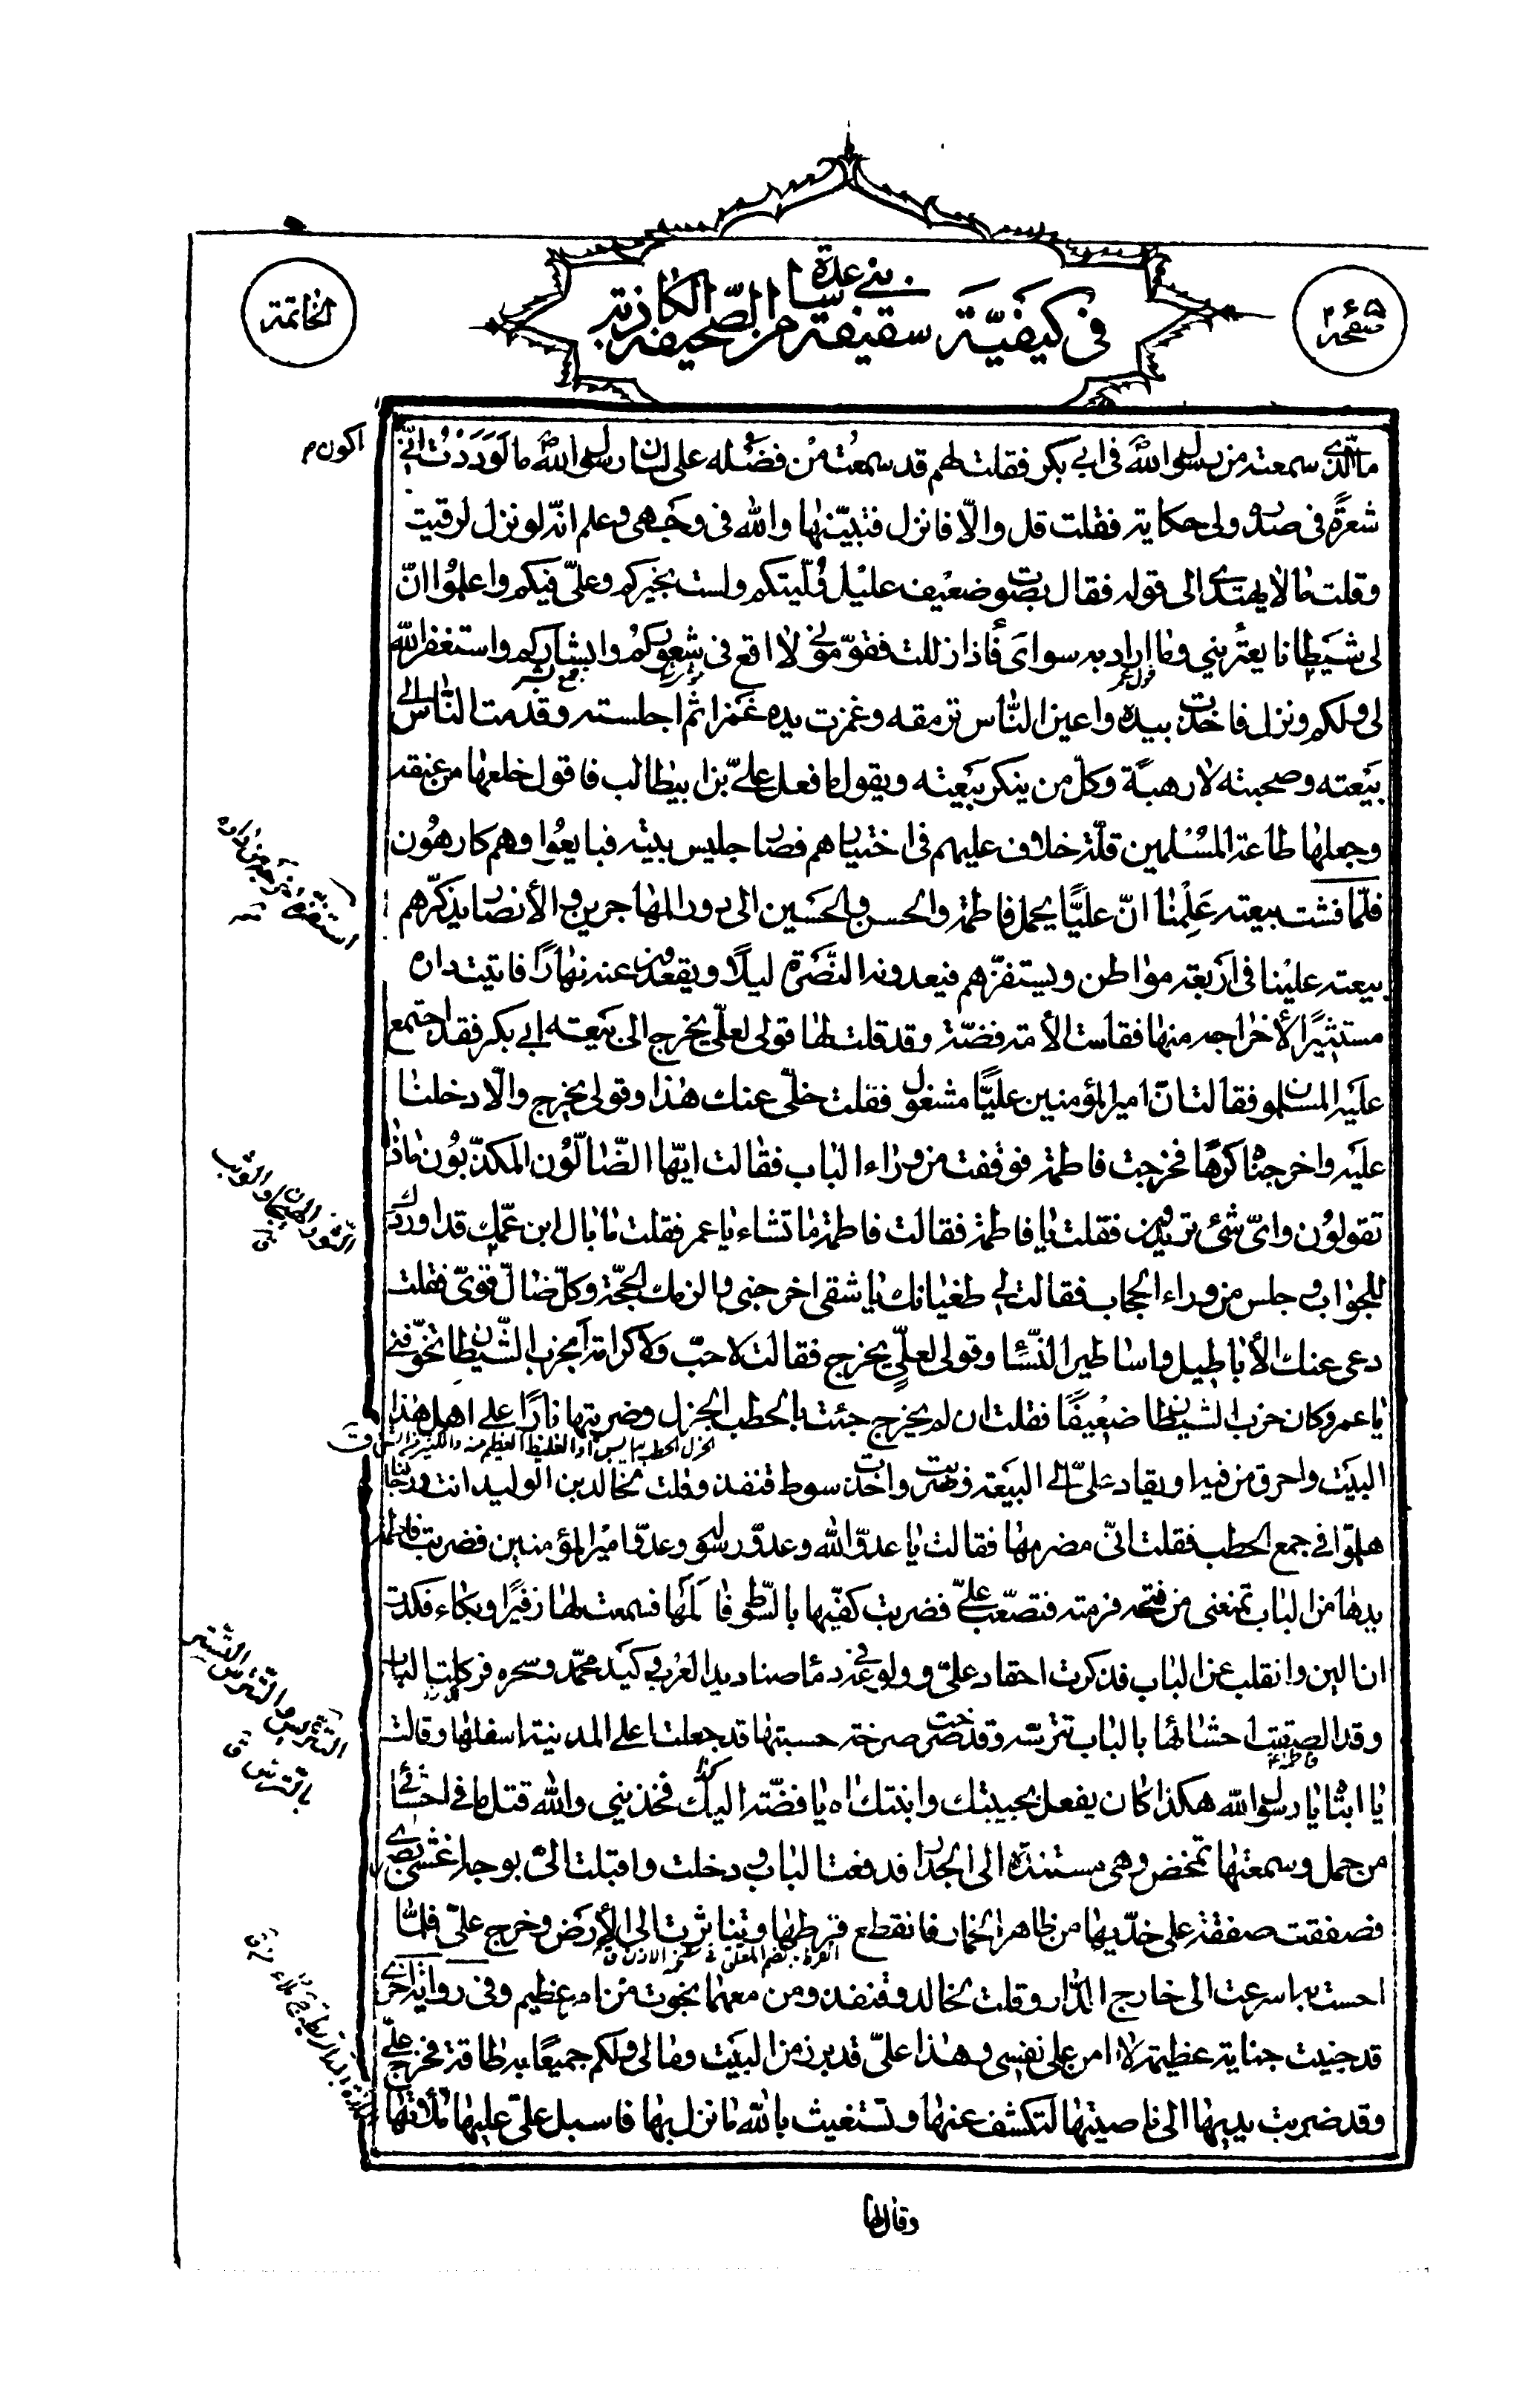 صفحه ٢٦٥
فى كيفيّة سقيفة بنى ساعدة من الصّحيفة الكاذبة
الخاتمة
ما الّذى سمعته من رسول الله فى ابى بكر فقلت لهم قد سمعت من فضله على لسان رسول الله ما لو وددت انّى
اكون م
شعرة فى صدره ولى حكاية فقلت قل والّا فانزل فتبيّنها والله فى وجهى وعلم انّه لو نزل لرقيت
وقلت ما لا يهتدى الى قوله فقال بصوت ضعيف عليل وُلّيتكم ولست بخيركم وعلىّ فيكم واعلموا انّ
لى شيطانا يعترينى وما اراد به سواى فاذا زللت فقوّمونى لا اقع فى شعوركم وابشاركم واستغفر الله
جمع بشر
لى ولكم ونزل فاخذت بيده واعين النّاس ترمقه وغمزت يده غمزا ثم اجلسته وقدمت النّاس الى
بيعته وصحبته لارهبه وكلّ من ينكر بيعته ويقول ما فعل علىّ بن ابيطالب فاقول خلعها من عنقه
وجعلها طاعة المسلمين قلّة خلاف عليهم فى اختيارهم فصار جليس بيته فبايعوا وهم كارهون
فلمّا فشت بيعته علمنا انّ عليّا يحمل فاطمة والحسن والحسين الى دور المهاجرين والأنصار يذكّرهم
بيعته علينا فى اربعة مواطن ويستفزّهم فيعدونه النّصرة ليلًا ويقعدون عنه نهارًا فاتيت داره
مستشيرًا لأخراجه منها فقالت الأمة فضّة وقد قلت لها قولى لعلىّ يخرج الى بيعة ابى بكر فقد اجتمع
عليه المسلمون فقالت انّ امير المؤمنين عليًّا مشغول فقلت خلّى عنك هذا وقولى يخرج والّا دخلنا
عليه واخرجناه كرهًا فخرجت فاطمة فوقفت من وراء الباب فقالت ايّها الضّالّون المكذّبون ماذا
تقولون واىّ شىء تريدون فقلت يا فاطمة فقالت فاطمة ما تشاء يا عمر فقلت ما بال ابن عمّك قد اوردك
للجواب وجلس من وراء الحجاب فقالت لى طغيانك يا شقى اخرجنى والزمك الحجّة وكلّ ضالّ غوىّ فقلت
دعى عنك الأباطيل واساطير النّساء وقولى لعلىّ يخرج فقالت لا حبّ ولا كرامة أبحزب الشّيطان تخوّفنى
يا عمر وكان حزب الشيطان ضعيفًا فقلت ان لم يخرج جئت بالحطب الجزل وضربتها نارًا على اهل هذا
البيت واحرق من فيه او يقاد علىّ الى البيعة وضربت واخذت سوط قنفذ وقلت لخالد بن الوليد انت ورجالنا
هلمّوا فى جمع الحطب فقلت انّى مضرمها فقالت يا عدوّ الله وعدوّ رسوله وعدوّ امير المؤمنين فضربت فاطمة
يدها من الباب تمنعنى من فتحه فرمته فتصعّب علىّ فضربت كفّيها بالسّوط فألمها فسمعت لها زفيرًا وبكاء فكدت
ان الين وانقلب عن الباب فذكرت احقاد علىّ وولوعه فى دماء صناديد العرب وكيد محمّد وسحره فركلت الباب
وقد الصقت احشائها بالباب تترسه وقد صرخت صرخة حسبتها قد جعلت اعلى المدينة اسفلها وقالت
فاطمة
يا ابتاه يا رسول الله هكذا كان يفعل بحبيبتك وابنتك اه يا فضّة اليك فخذينى والله قتل ما فى احشائى
من حمل وسمعتها تمخض وهى مستندة الى الجدار فدفعت الباب ودخلت واقبلت الىّ بوجه اغشى بصرى
فصفقت صفقة على خدّيها من ظاهر الخمار فانقطع قرطها وتناثرت الى الأرض وخرج علىّ فلمّا
احست به اسرعت الى خارج الدّار وقلت لخالد وقنفذ ومن معهما نجوت من امر عظيم وفى رواية اخرى
قد جنيت جناية عظيمة لا امن على نفسى وهذا علىّ قد برز من البيت وما لى ولكم جميعًا به طاقة فخرج علىّ
وقد ضربت يديها الى ناصيتها لتكشف عنها وتستغيث بالله ما نزل بها فاسبل علىّ عليها ملائتها
وقال لها